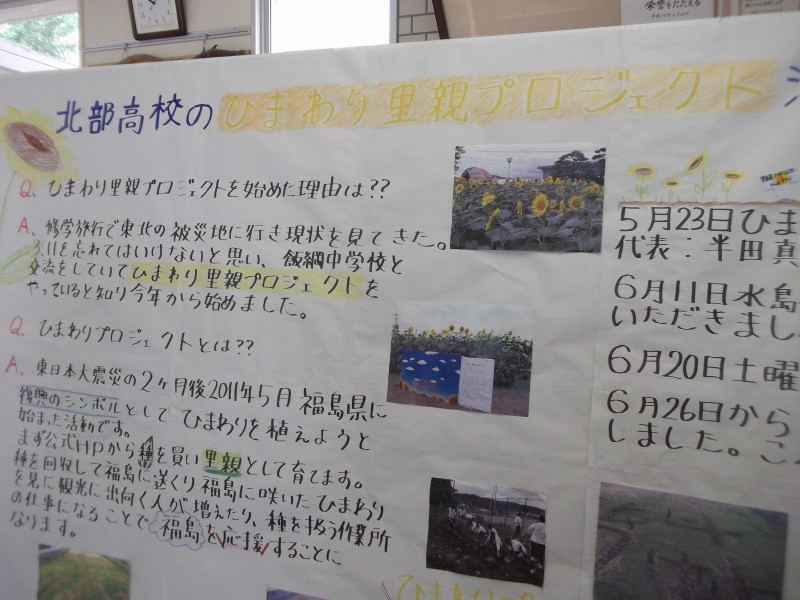 栄誉をたたえる
北部高校のひまわり里親プロジェクト
Q、ひまわり里親プロジェクトを始めた理由は??
A、修学旅行で東北の被災地に行き現状を見てきた。
3.11を忘れてはいけないと思い、飯綱中学校と
交流をしていてひまわり里親プロジェクトを
やっていると知り今年から始めました。
Q、ひまわりプロジェクトとは??
A、東日本大震災の2ヶ月後2011年5月福島県に
復興のシンボルとしてひまわりを植えようと
始まった活動です。
まず公式HPから種を買い里親として育てます。
種を回収して福島に送くり福島に咲いたひまわり
を見に観光に出向く人が増えたり、種を扱う作業所
の仕事になることで福島を応援することに
なります。
5月23日ひま
代表：半田真
6月11日水島
いただきまし
6月20日土曜
6月26日から
しました。こ